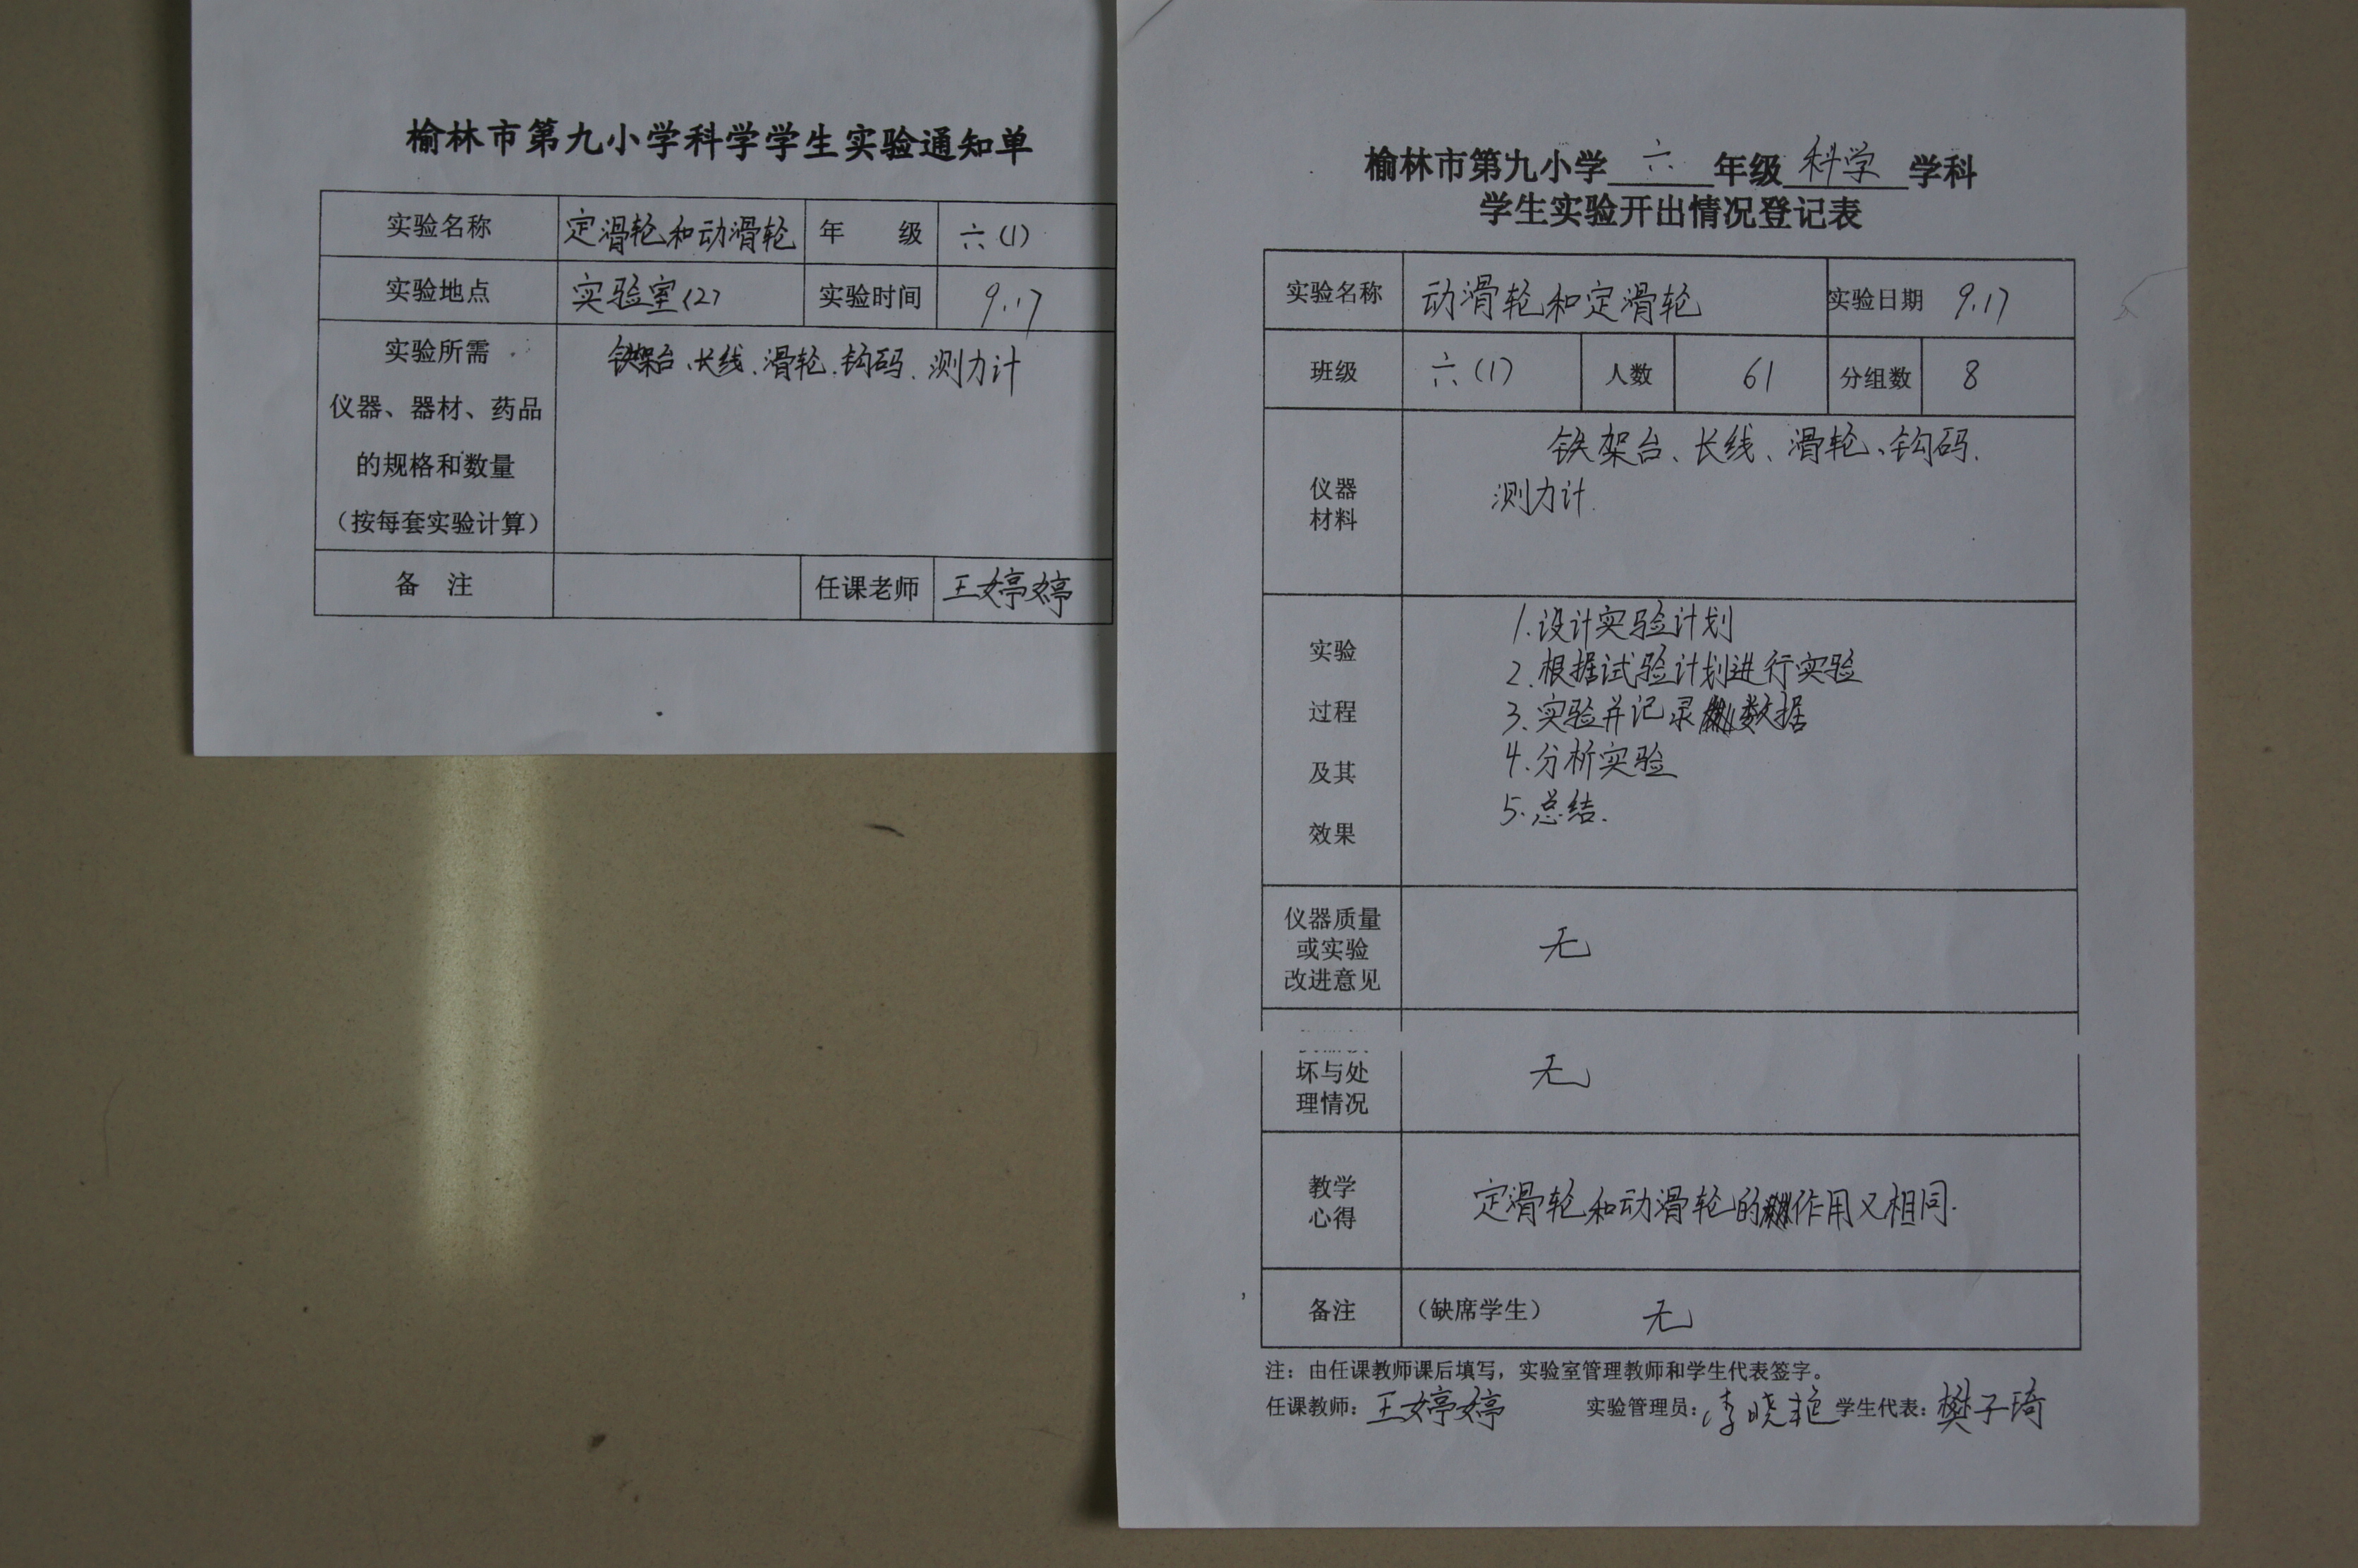 榆林市第九小学科学学生实验通知单
实验名称 定滑轮和动滑轮 年 级 六(1)
实验地点 实验室(2) 实验时间 9.17
实验所需
仪器、器材、药品
的规格和数量
(按每套实验计算)
铁架台、长线、滑轮、钩码、测力计
备 注 任课老师 王婷婷
榆林市第九小学 六 年级 科学 学科
学生实验开出情况登记表
实验名称 动滑轮和定滑轮 实验日期 9.17
班级 六(1) 人数 61 分组数 8
仪器
材料
铁架台、长线、滑轮、钩码.
测力计.
实验
过程
及其
效果
1.设计实验计划
2.根据试验计划进行实验
3.实验并记录数据
4.分析实验
5.总结.
仪器质量
或实验
改进意见
无
坏与处
理情况
无
教学
心得
定滑轮和动滑轮的作用又相同.
备注 (缺席学生) 无
注：由任课教师课后填写，实验室管理教师和学生代表签字。
任课教师：王婷婷 实验管理员：李晓艳 学生代表：樊子琦